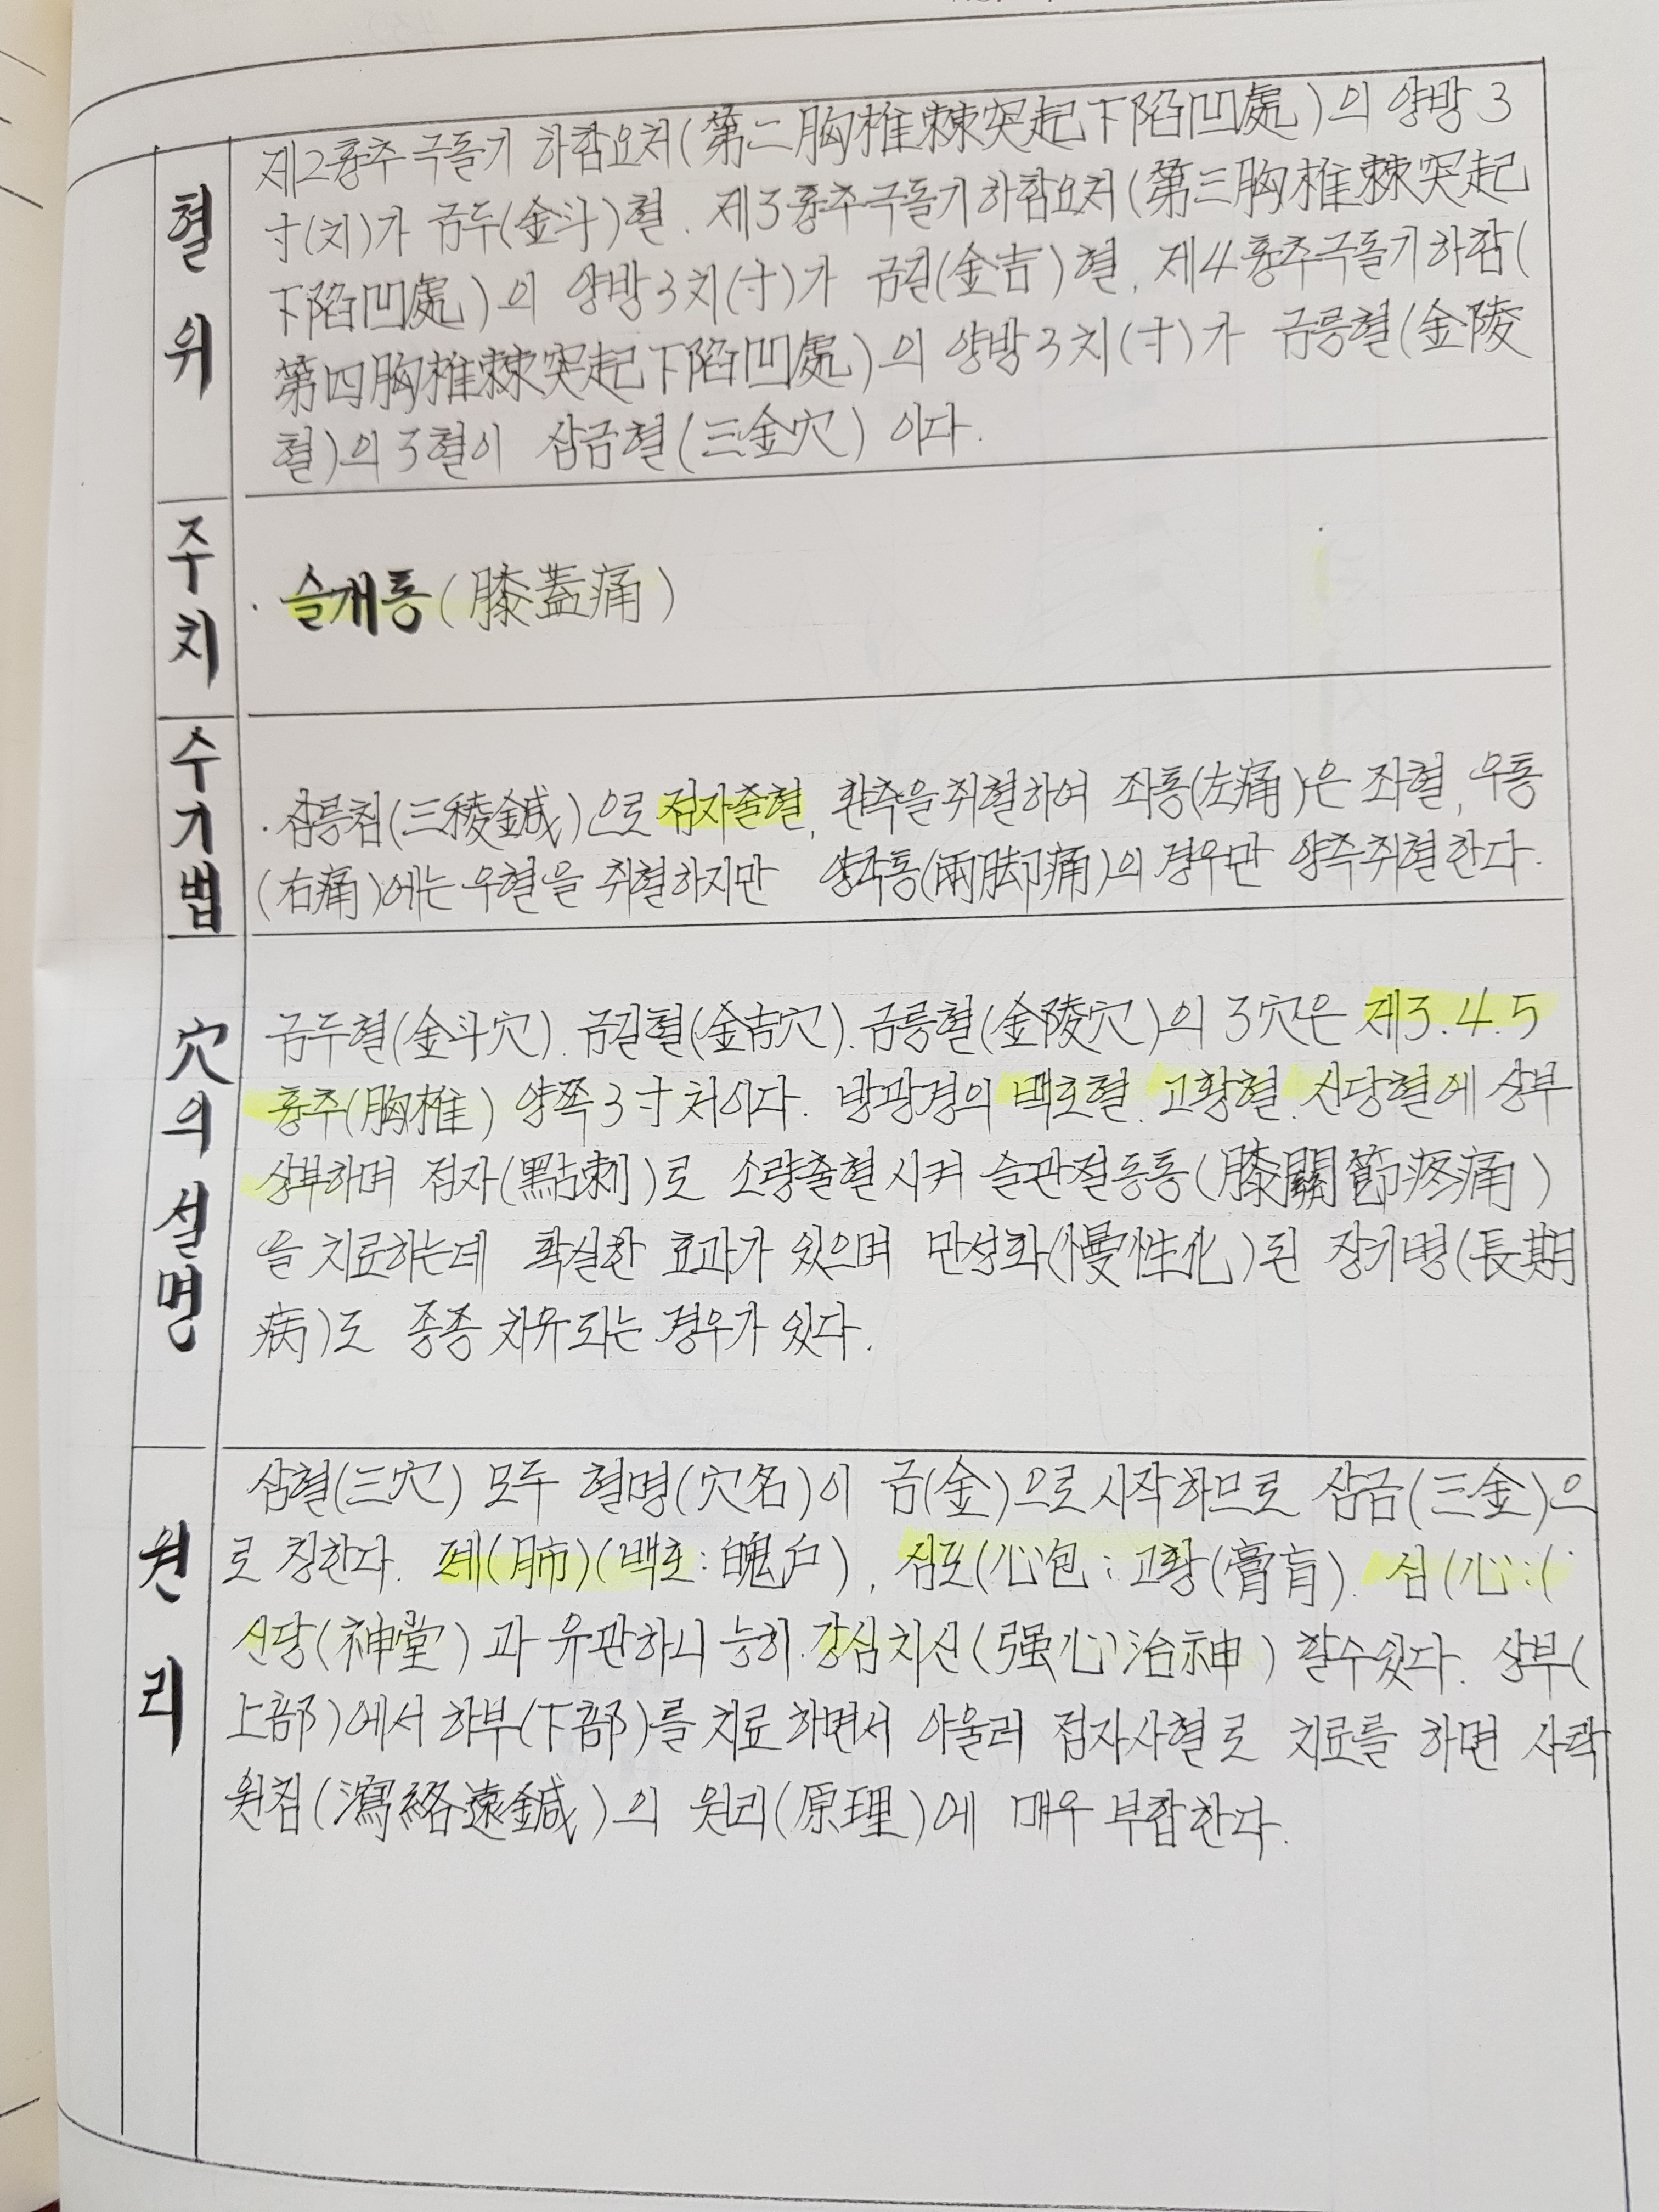 혈위
제2흉추 극돌기 하함요처(第二胸椎棘突起下陷凹處)의 양방 3
寸(치)가 금두(金斗)혈. 제3흉추극돌기하함요처(第三胸椎棘突起
下陷凹處)의 양방3치(寸)가 금길(金吉)혈, 제4흉추극돌기하함(
第四胸椎棘突起下陷凹處)의 양방3치(寸)가 금릉혈(金陵
혈)의 3혈이 삼금혈(三金穴) 이다.
주치
· 슬개통(膝蓋痛)
수기법
· 삼릉침(三稜鍼)으로 점자출혈, 환측을 취혈하여 좌통(左痛)은 좌혈, 우통
(右痛)에는 우혈을 취혈하지만 양각통(兩脚痛)의 경우만 양측취혈한다.
穴의 설명
금두혈(金斗穴). 금길혈(金吉穴). 금릉혈(金陵穴)의 3穴은 제3.4.5
흉추(胸椎) 양쪽 3寸처이다. 방광경의 백호혈. 고황혈. 신당혈에 상부
상부하며 점자(點刺)로 소량출혈시켜 슬관절동통(膝關節疼痛)
을 치료하는데 확실한 효과가 있으며 만성화(慢性化)된 장기병(長期
病)도 종종 치유되는 경우가 있다.
원리
삼혈(三穴) 모두 혈명(穴名)이 금(金)으로 시작하므로 삼금(三金)으
로 칭한다. 폐(肺)(백호:魄戶), 심포(心包:고황(膏肓). 심(心:(
신당(神堂)과 유관하니 능히 강심치신(强心治神) 할수있다. 상부(
上部)에서 하부(下部)를 치료하면서 아울러 점자사혈로 치료를 하면 사락
원침(瀉絡遠鍼)의 원리(原理)에 매우 부합한다.